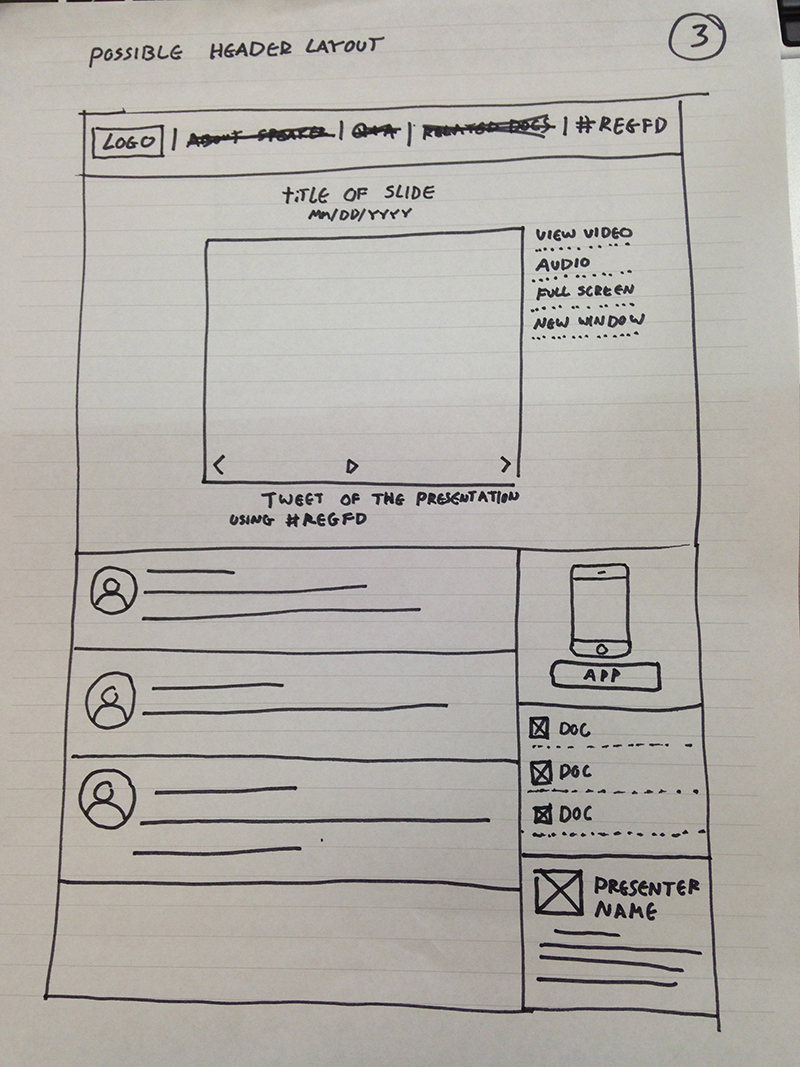 POSSIBLE HEADER LAYOUT
3
LOGO | ABOUT SPEAKER | Q+A | RELATED DOCS | #REGFD
TITLE OF SLIDE
MM/DD/YYYY
VIEW VIDEO
AUDIO
FULL SCREEN
NEW WINDOW
TWEET OF THE PRESENTATION
USING #REGFD
APP
DOC
DOC
DOC
PRESENTER
NAME